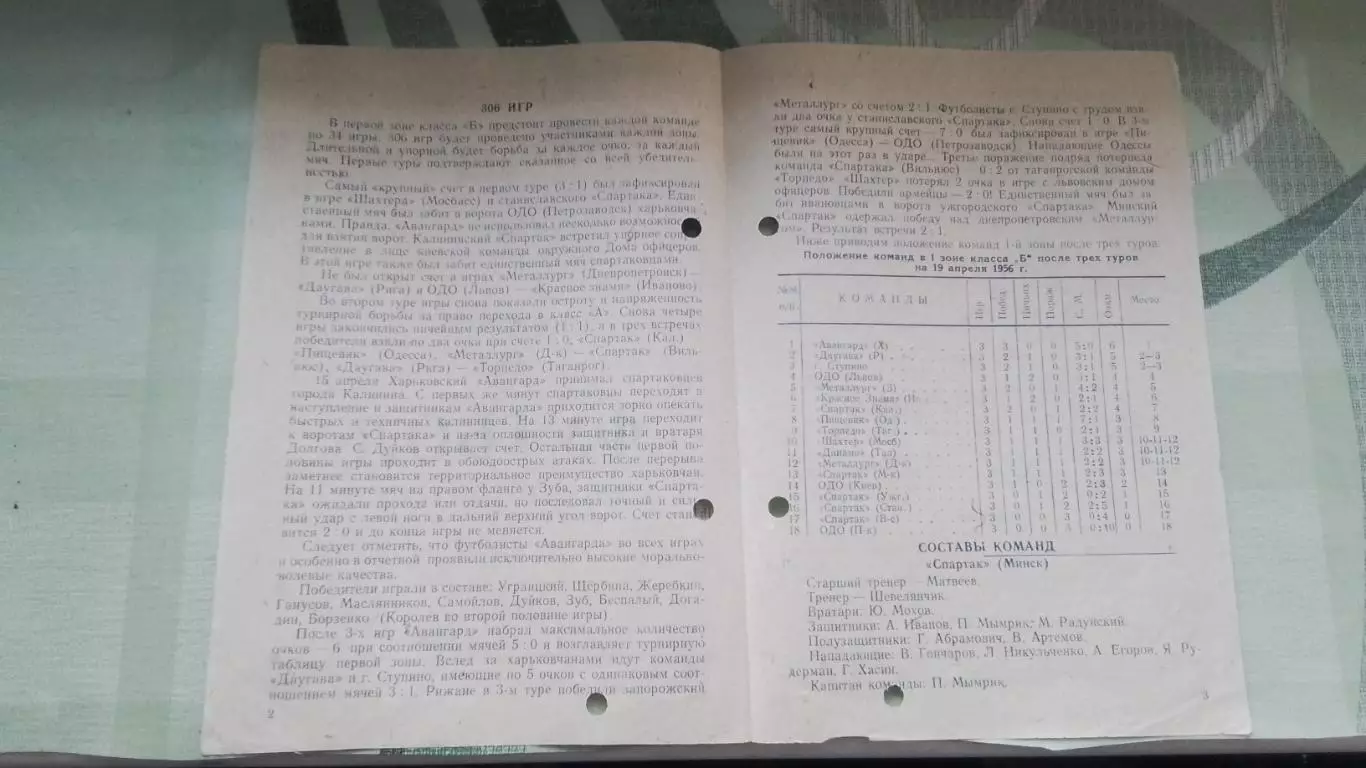 306 ИГР
В первой зоне класса «Б» предстоит провести каждой команде
по 34 игры. 306 игр будет проведено участниками каждой зоны.
Длительной и упорной будет борьба за каждое очко, за каждый
мяч. Первые туры подтверждают сказанное со всей убедитель-
ностью.
Самый «крупный» счет в первом туре (3 : 1) был зафиксирован
в игре «Шахтера» (Мосбасс) и станиславского «Спартака». Един
ственный мяч был забит в ворота ОДО (Петрозаводск) харьковча-
нами. Правда, «Авангард» не использовал несколько возможностей
для взятия ворот. Калининский «Спартак» встретил упорное сопро-
тивление в лице киевской команды окружного Дома офицеров.
В этой игре также был забит единственный мяч спартаковцами.
Не был открыт счет в играх «Металлург» (Днепропетровск) —
«Даугава» (Рига) и ОДО (Львов) — «Красное знамя» (Иваново).
Во втором туре игры снова показали остроту и напряженность
турнирной борьбы за право перехода в класс «А». Снова четыре
игры закончились ничейным результатом (1 : 1), а в трех встречах
победители взяли по два очка при счете 1 : 0, «Спартак» (Кал.) —
«Пищевик» (Одесса), «Металлург» (Д-к) — «Спартак» (Виль-
нюс), «Даугава» (Рига) — «Торпедо» (Таганрог).
15 апреля Харьковский «Авангард» принимал спартаковцев
города Калинина. С первых же минут спартаковцы переходят в
наступление и защитникам «Авангарда» приходится зорко опекать
быстрых и техничных калининцев. На 13 минуте игра переходит
к воротам «Спартака» и из-за оплошности защитника и вратаря
Долгова С. Дуйков открывает счет. Остальная часть первой по-
ловины игры проходит в обоюдоострых атаках. После перерыва
заметнее становится территориальное преимущество харьковчан.
На 11 минуте мяч на правом фланге у Зуба, защитники «Спарта-
ка» ожидали прохода или отдачи, но последовал точный и силь-
ный удар с левой ноги в дальний верхний угол ворот. Счет стано-
вится 2 : 0 и до конца игры не меняется.
Следует отметить, что футболисты «Авангарда» во всех играх
и особенно в отчетной проявили исключительно высокие морально-
волевые качества.
Победители играли в составе: Уграицкий, Щербина, Жеребкин,
Ганусов, Маслянников, Самойлов, Дуйков, Зуб, Беспалый, Дога-
дин, Борзенко (Королев во второй половине игры).
После 3-х игр «Авангард» набрал максимальное количество
очков — 6 при соотношении мячей 5 : 0 и возглавляет турнирную
таблицу первой зоны. Вслед за харьковчанами идут команды
«Даугава» и г. Ступино, имеющие по 5 очков с одинаковым соот-
ношением мячей 3 : 1. Рижане в 3-м туре победили запорожский
2
«Металлург» со счетом 2 : 1. Футболисты г. Ступино с трудом взя-
ли два очка у станиславского «Спартака». Снова счет 1 : 0. В 3-м
туре самый крупный счет — 7 : 0 был зафиксирован в игре «Пи-
щевик» (Одесса) — ОДО (Петрозаводск). Нападающие Одессы
были на этот раз в ударе... Третье поражение подряд потерпела
команда «Спартака» (Вильнюс) — 0 : 2 от таганрогской команды
«Торпедо». «Шахтер» потерял 2 очка в игре с львовским домом
офицеров. Победили армейцы — 2 : 0! Единственный мяч был за-
бит ивановцами в ворота ужгородского «Спартака». Минский
«Спартак» одержал победу над днепропетровским «Металлур-
гом». Результат встречи 2 : 1.
Ниже приводим положение команд 1-й зоны после трех туров:
Положение команд в I зоне класса „Б“ после трех туров
на 19 апреля 1956 г.
№№ п/п. КОМАНДЫ Игр Побед Ничьих Пораж С. М. Очки Место
1 «Авангард» (Х) 3 3 0 0 5 : 0 6 1
2 «Даугава» (Р) 3 2 1 0 3 : 1 5 2—3
3 г. Ступино 3 2 1 0 3 : 1 5 2—3
4 ОДО (Львов) 3 1 2 0 3 : 1 4 4
5 «Металлург» (З) 3 2 0 1 4 : 2 4 5
6 «Красное Знамя» (И 3 1 2 0 2 : 1 4 6
7 «Спартак» (Кал.) 3 2 0 1 2 : 2 4 7
8 «Пищевик» (Од.) 3 1 1 1 7 : 1 3 8
9 «Торпедо» (Таг.) 3 1 1 1 2 : 1 3 9
10 «Шахтер» (Мосб) 3 1 1 1 3 : 3 3 10-11-12
11 «Динамо» (Тал) 3 1 1 1 2 : 2 3 10-11-12
12 «Металлург» (Д-к) 3 1 1 1 2 : 2 3 10-11-12
13 «Спартак» (М-к) 3 1 1 1 2 : 3 3 13
14 ОДО (Киев) 3 1 0 2 2 : 3 2 14
15 «Спартак» (Ужг.) 3 0 1 2 0 : 2 1 15
16 «Спартак» (Стан.) 3 0 1 2 2 : 5 1 16
17 «Спартак» (В-с) 3 0 0 3 0 : 4 0 17
18 ОДО (П-к) 3 0 0 3 0 : 10 0 18
СОСТАВЫ КОМАНД
«Спартак» (Минск)
Старший тренер — Матвеев.
Тренер — Шевелянчик.
Вратари: Ю. Мохов.
Защитники: А. Иванов, П. Мымрик, М. Радунский.
Полузащитники: Г. Абрамович, В. Артемов.
Нападающие: В. Гончаров, Л. Никульченко, А. Егоров, Я. Ру-
дерман, Г. Хасин.
Капитан команды: П. Мымрик.
3